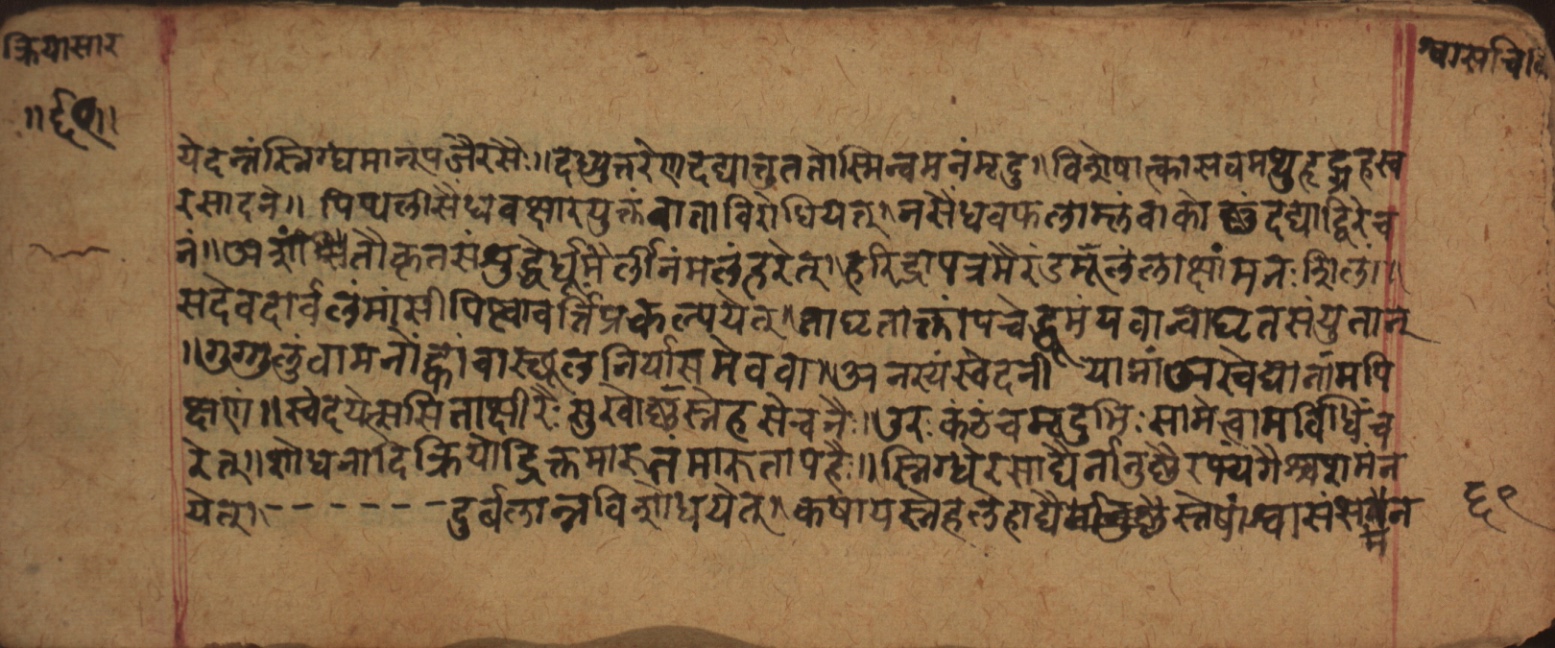 क्रियासार
॥६९॥
श्वासचि।
येदन्नंस्निग्धमानूपजैरसैः॥दध्युत्तरेणदद्यात्तुततोस्मिन्वमनंमृदु॥विशेषात्कासवमथुहृद्ग्रहस्व
रसादने॥ पिप्पलीसैंधवक्षारयुक्तंवाताविरोधियत्॥नसैंधवफलाम्लंवाकोष्णंदद्याद्विरेच
नं॥अशांतौकृतसंशुद्धेर्धूमैर्लीनंमलंहरेत्॥हरिद्रापत्रमैरंडमूलंलाक्षांमनःशिलां॥
सदेवदार्वलंमांसीपिष्ट्वावर्त्तिंप्रकल्पयेत्॥ताघृताक्तांपिबेद्धूमंयवान्वाघृतसंयुतान्
॥गुग्गुलुंवामनोह्वांवाशालनिर्यासमेववा॥अनस्यंस्वेदनीयानांअस्वेद्यानामपि
क्षणं॥स्वेदयेत्ससिताक्षीरैःसुखोष्णस्नेहसेचनैः॥उरःकंठंचमृदुभिःसामेत्वामविधिंच
रेत्॥शोधनादिक्रियोद्रिक्तमारुतंमारुतापहैः॥स्निग्धैरसाद्यैर्नात्युष्णैरभ्यंगैश्चशमंन
येत्॥-------दुर्बलान्नविशोधयेत्॥कषायस्नेहलेहाद्यैस्तेषांश्वासंसमंन
म
६९